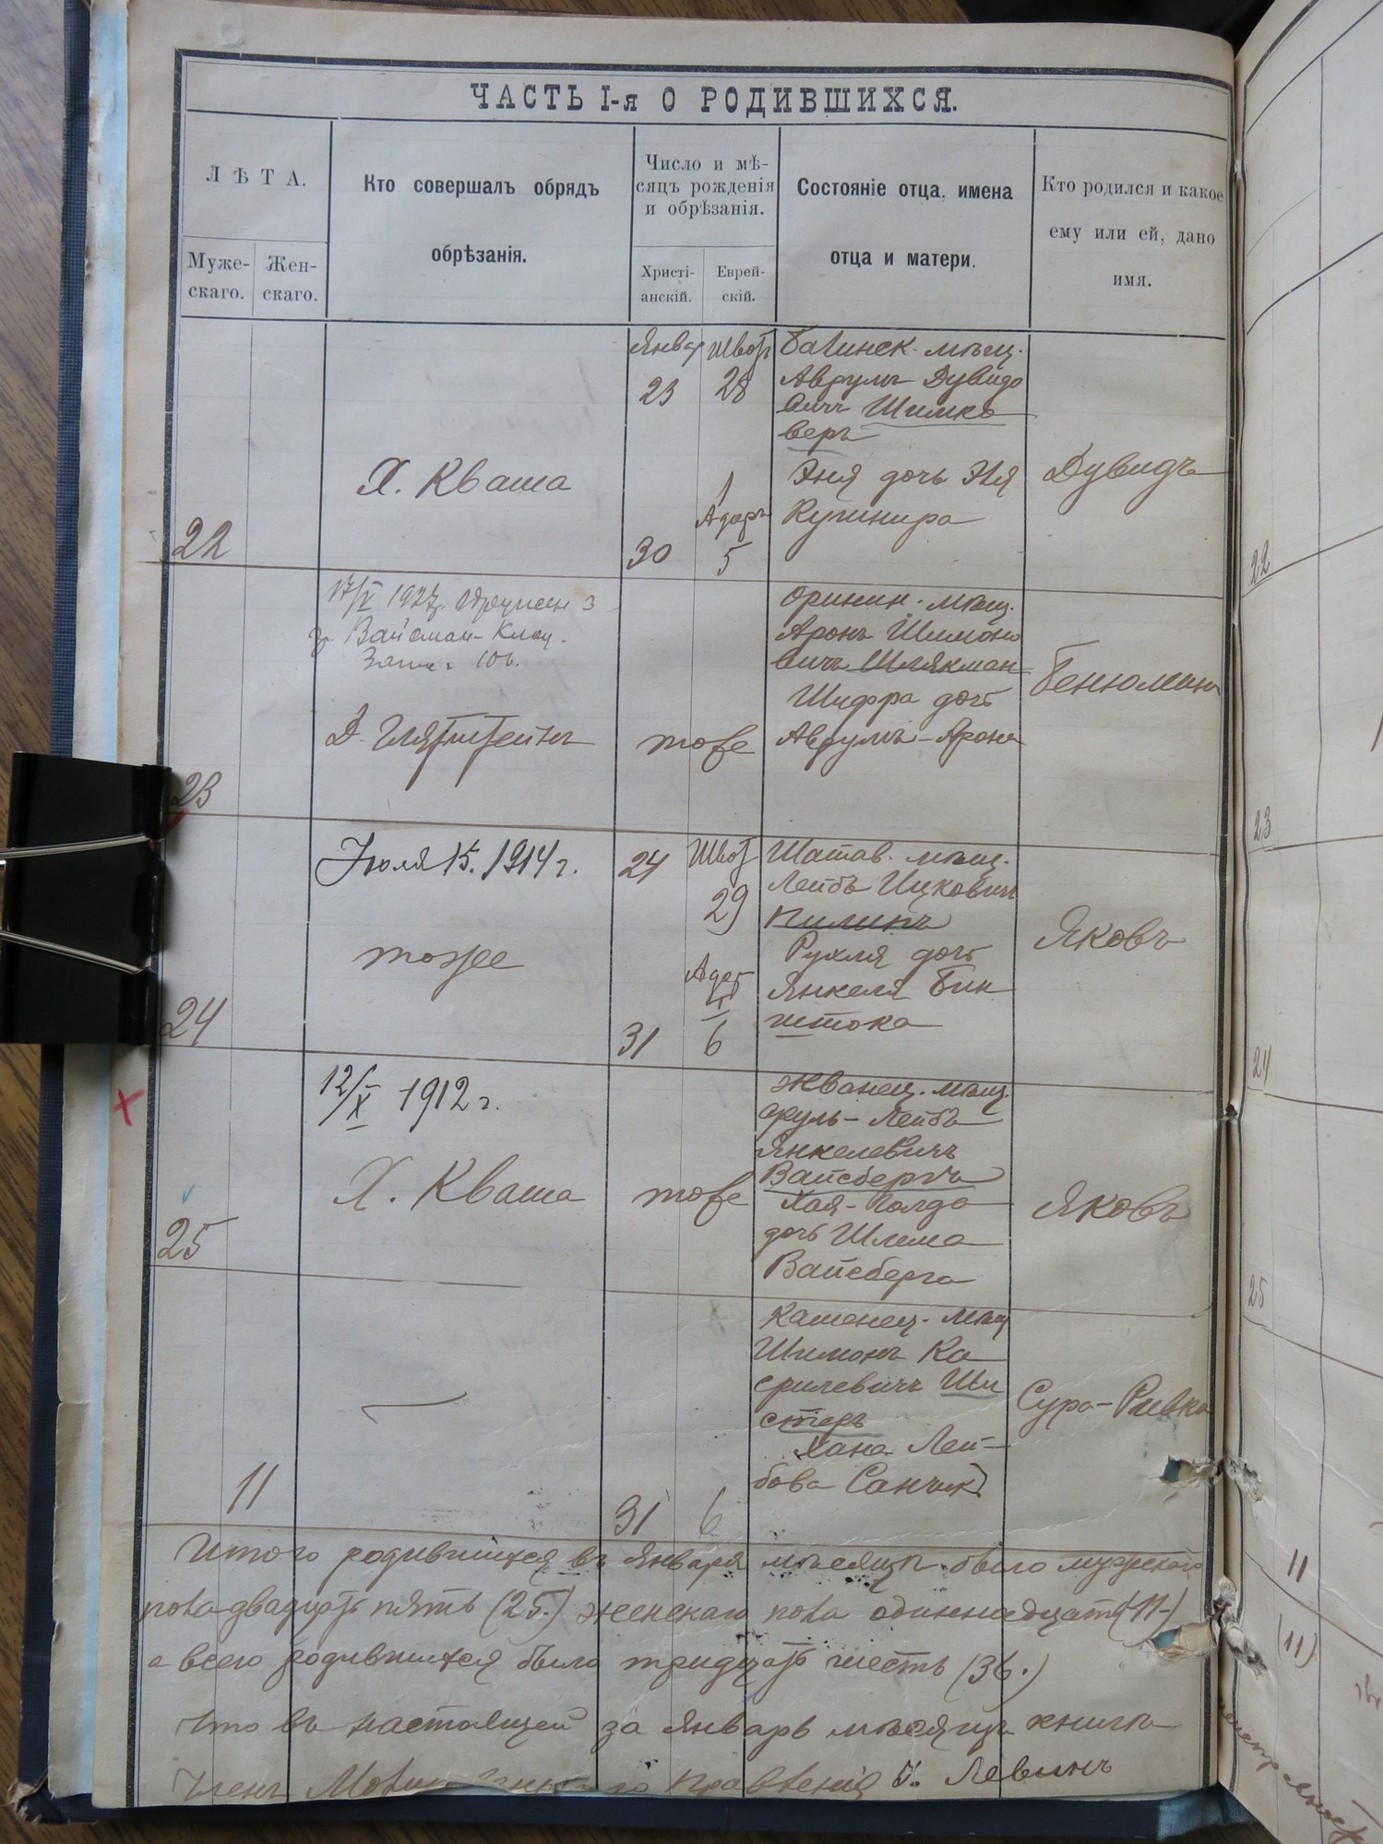 ЧАСТЬ I-я О РОДИВШИХСЯ.
ЛѢТА.
Муже-
скаго.
Жен-
скаго.
Кто совершалъ обрядъ
обрѣзанія.
Число и мѣ-
сяцъ рожденія
и обрѣзанія.
Христі-
анскій.
Еврей-
скій.
Состояніе отца, имена
отца и матери.
Кто родился и какое
ему или ей, дано
имя.
22
Х. Кваша
Январ
23
30
Швот
28
1
Адаръ
5
мѣщ.
Аврумъ Дувидо
вичъ Шимко
веръ
Эня дочь Эля
Кушнира
Дувидъ
23
17/V 1927г.
Вайсман
Д. Глятштейнъ
тоже
Оринин. мѣщ.
Аронъ Шимоно
вичъ Шлякман
Шифра дочь
Аврумъ-Арона
Бенюминъ
24
Іюля 15. 1914 г.
тоже
24
31
Швот
29
Адар
6
Шатав. мѣщ.
Лейбъ Ицковичъ
Пилипъ
Рухля дочь
Янкеля Бин
штока
Яковъ
25
12/X 1912 г.
Х. Кваша
тоже
Жванец. мѣщ.
Сруль-Лейбъ
Янкелевичъ
Вайсбергъ
Хая-Голда
дочь Шлема
Вайсберга
Яковъ
11
31
6
Каменец. мѣщ
Шимонъ Ка
срилевичъ Ши
стеръ
Хана Лей-
бова Санчик
Сура-Ривка
Итого родившихся въ Январѣ мѣсяцѣ было мужского
пола двадцать пять (25.) женскаго пола одиннадцать (-11-)
а всего родившихся было тридцать шесть (36.)
Что въ настоящей за Январь мѣсяцъ книгѣ
Членъ правленія Левинъ
22
23
24
25
11
(11)